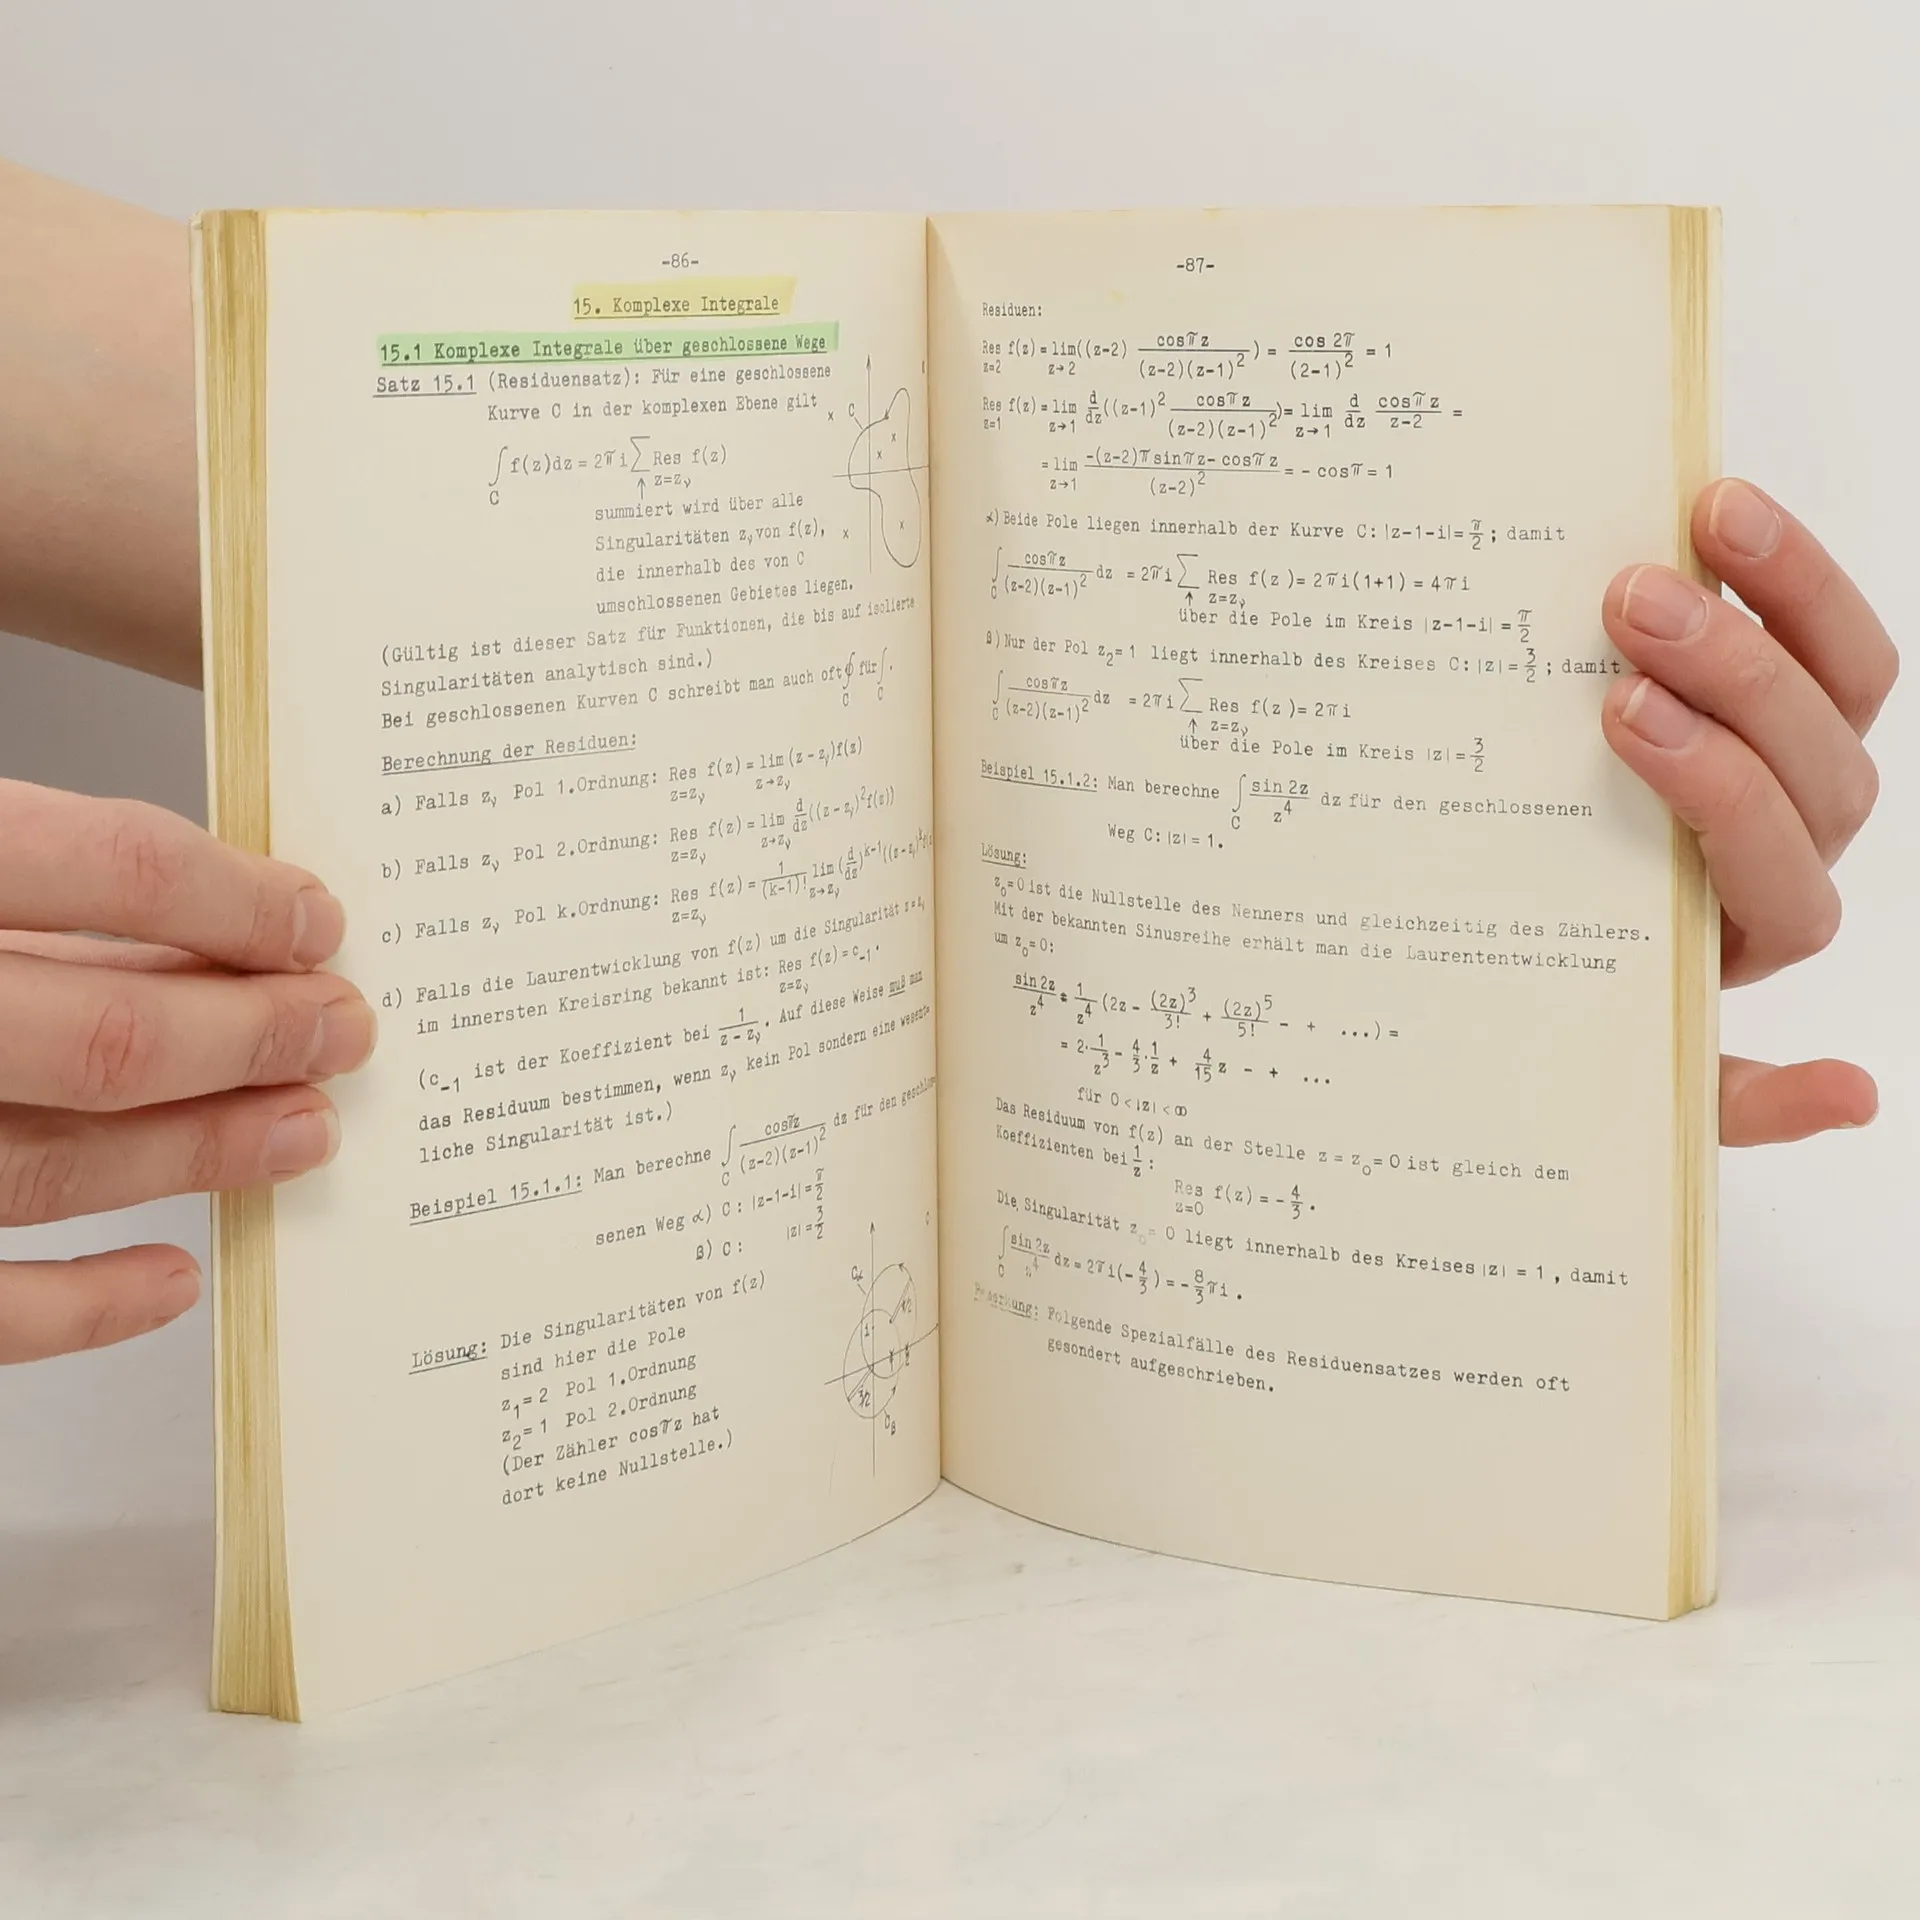 -86-
15. Komplexe Integrale
15.1 Komplexe Integrale über geschlossene Wege
Satz 15.1 (Residuensatz): Für eine geschlossene
Kurve C in der komplexen Ebene gilt
∫_C f(z)dz = 2πi ∑ Res f(z)
z=zᵥ
summiert wird über alle
Singularitäten zᵥ von f(z),
die innerhalb des von C
umschlossenen Gebietes liegen.
(Gültig ist dieser Satz für Funktionen, die bis auf isolierte
Singularitäten analytisch sind.)
Bei geschlossenen Kurven C schreibt man auch oft ∮_C für ∫_C.
Berechnung der Residuen:
a) Falls zᵥ Pol 1.Ordnung: Res f(z) = lim (z - zᵥ)f(z)
z=zᵥ z→zᵥ
b) Falls zᵥ Pol 2.Ordnung: Res f(z) = lim d/dz((z - zᵥ)²f(z))
z=zᵥ z→zᵥ
c) Falls zᵥ Pol k.Ordnung: Res f(z) = 1/(k-1)! lim (d/dz)^k-1((z - zᵥ)^k
z=zᵥ z→zᵥ
d) Falls die Laurentwicklung von f(z) um die Singularität z = zᵥ
im innersten Kreisring bekannt ist: Res f(z) = c₋₁.
z=zᵥ
(c₋₁ ist der Koeffizient bei 1/(z - zᵥ). Auf diese Weise muß man
das Residuum bestimmen, wenn zᵥ kein Pol sondern eine wesent-
liche Singularität ist.)
Beispiel 15.1.1: Man berechne ∫_C cosπz/((z-2)(z-1)²) dz für den
senen Weg α) C: |z-1-i| = π/2
β) C: |z| = 3/2
Lösung: Die Singularitäten von f(z)
sind hier die Pole
z₁= 2 Pol 1.Ordnung
z₂= 1 Pol 2.Ordnung
(Der Zähler cosπz hat
dort keine Nullstelle.)
C
Cα
π/2
i
3/2
Cβ
-87-
Residuen:
Res f(z) = lim((z-2) cosπz/((z-2)(z-1)²)) = cos 2π/(2-1)² = 1
z=2 z→2
Res f(z) = lim d/dz((z-1)² cosπz/((z-2)(z-1)²)) = lim d/dz cosπz/(z-2) =
z=1 z→1 z→1
= lim (-(z-2)π sinπz - cosπz)/(z-2)² = - cosπ = 1
z→1
α) Beide Pole liegen innerhalb der Kurve C: |z-1-i| = π/2 ; damit
∫_C cosπz/((z-2)(z-1)²) dz = 2πi ∑ Res f(z) = 2πi(1+1) = 4πi
z=zᵥ
über die Pole im Kreis |z-1-i| = π/2
β) Nur der Pol z₂= 1 liegt innerhalb des Kreises C: |z| = 3/2 ; damit
∫_C cosπz/((z-2)(z-1)²) dz = 2πi ∑ Res f(z) = 2πi
z=zᵥ
über die Pole im Kreis |z| = 3/2
Beispiel 15.1.2: Man berechne ∫_C sin 2z/z⁴ dz für den geschlossenen
Weg C: |z| = 1.
Lösung:
z₀= 0 ist die Nullstelle des Nenners und gleichzeitig des Zählers.
Mit der bekannten Sinusreihe erhält man die Laurententwicklung
um z₀= 0:
sin 2z/z⁴ = 1/z⁴ (2z - (2z)³/3! + (2z)⁵/5! - + ...) =
= 2·1/z³ - 4/3·1/z + 4/15 z - + ...
für 0 < |z| < ∞
Das Residuum von f(z) an der Stelle z = z₀= 0 ist gleich dem
Koeffizienten bei 1/z :
Res f(z) = - 4/3 .
z=0
Die Singularität z₀= 0 liegt innerhalb des Kreises |z| = 1 , damit
∫_C sin 2z/z⁴ dz = 2πi(- 4/3) = - 8/3 πi .
Bemerkung: Folgende Spezialfälle des Residuensatzes werden oft
gesondert aufgeschrieben.